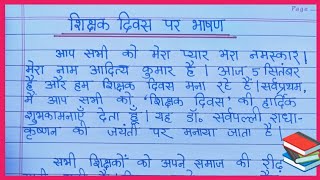 Page
शिक्षक दिवस पर भाषण
आप सभी को मेरा प्यार भरा नमस्कार।
मेरा नाम आदित्य कुमार है। आज 5 सितंबर
है और हम शिक्षक दिवस मना रहे हैं। सर्वप्रथम,
मैं आप सभी को 'शिक्षक दिवस' की हार्दिक
शुभकामनाएँ देता हूँ। यह डॉ. सर्वपल्ली राधा-
कृष्णन की जयंती पर मनाया जाता है।
सभी शिक्षकों को अपने समाज की रीढ़